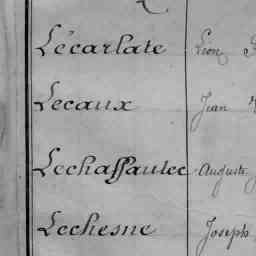 Lécarlate Léon
Lecaux Jean
Lechaffautec Auguste
Lechesne Joseph